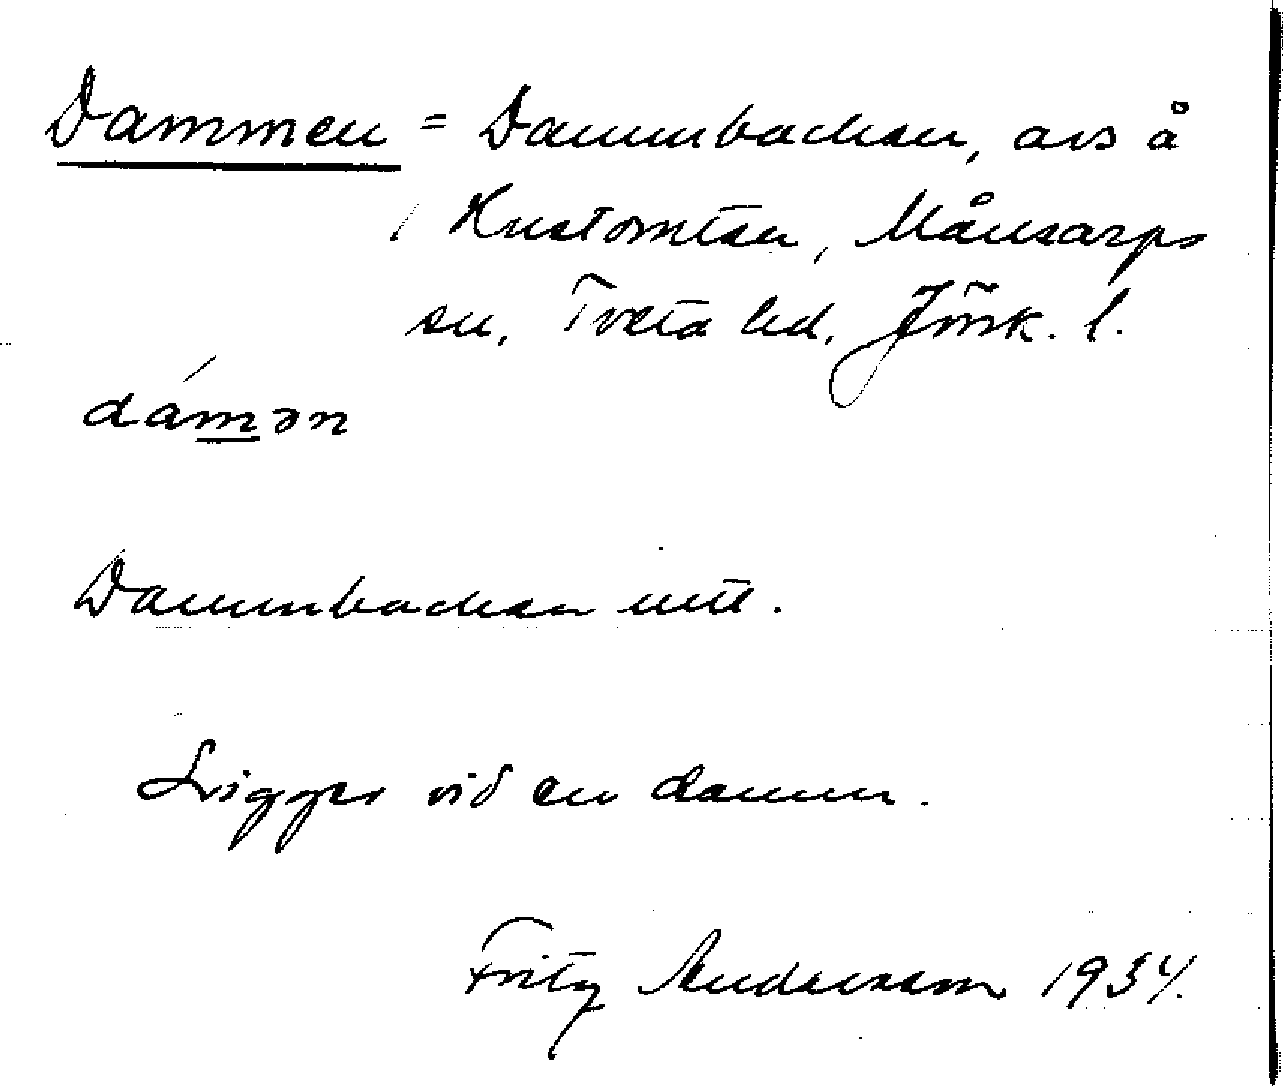 Dammen = Dammbacken, avs å
Knutomten, Månsarps
sn, Tveta hd, Jönk. l.
dámən
Dammbacken uttl.
Ligger vid en damm.
Fritz Andersson 1934.